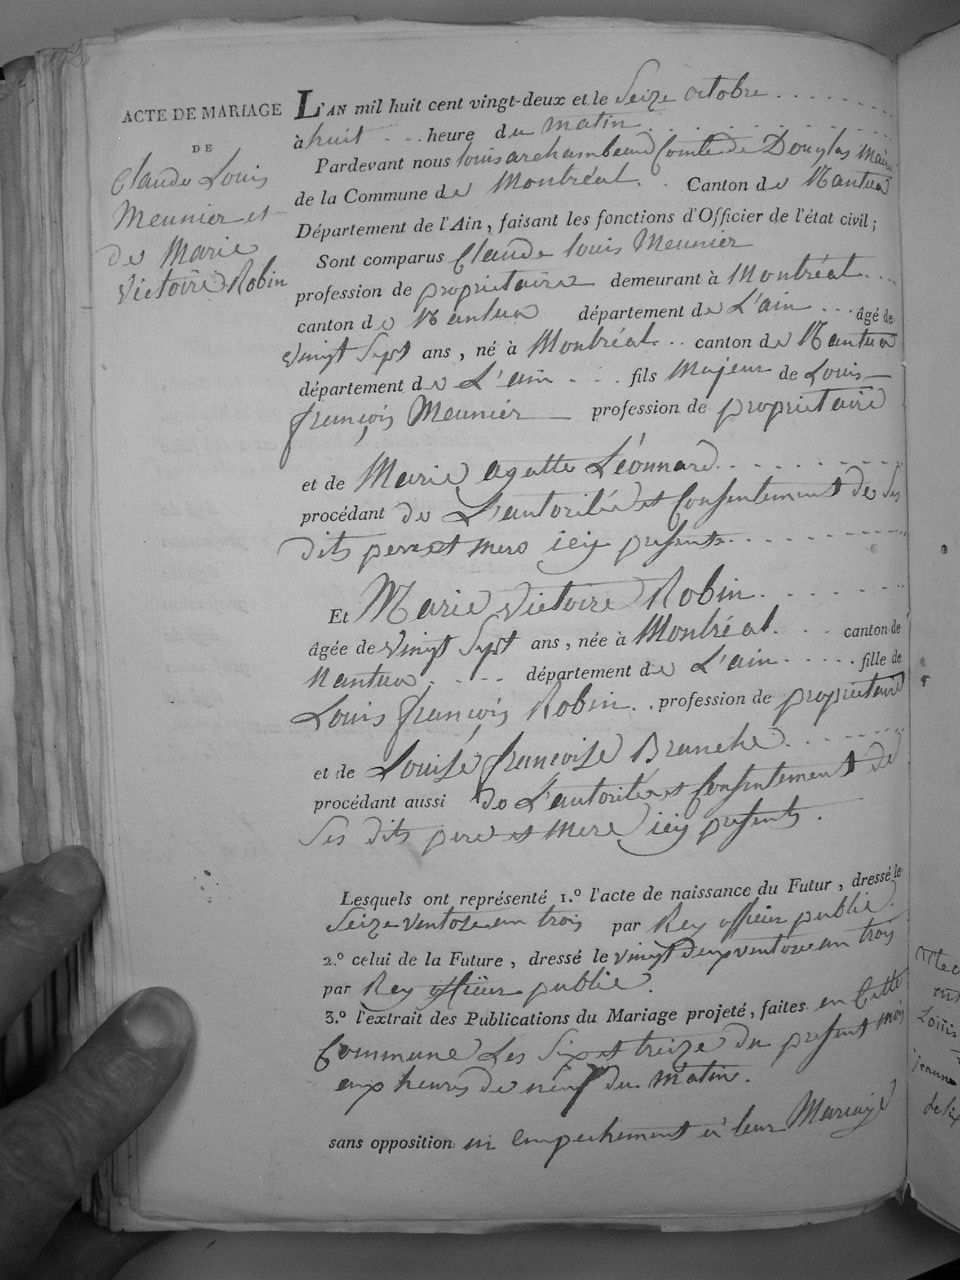 ACTE DE MARIAGE
DE
Claude Louis
Meunier et
de Marie
Victoire Robin
L'AN mil huit cent vingt-deux et le Seize octobre
à huit heure du matin
Pardevant nous louis archambaud Comte de Douglas Maire
de la Commune de Montréal. Canton de Nantua
Département de l'Ain, faisant les fonctions d'Officier de l'état civil;
Sont comparus Claude louis Meunier
profession de propriétaire demeurant à Montréal
canton de Nantua département de L'ain âgé de
vingt Sept ans, né à Montréal canton de Nantua
département de L'ain fils Majeur de Louis
françois Meunier profession de propriétaire
et de Marie agathe Léonnard
procédant de L'autorité et Consentement de Ses
dits pere et mere icy présents
Et Marie Victoire Robin
âgée de vingt Sept ans, née à Montréal canton de
Nantua département de L'ain fille de
Louis françois Robin profession de propriétaire
et de Louise françoise Branche
procédant aussi de L'autorité et Consentement de
Ses dits pere et mere icy présents.
Lesquels ont représenté 1.º l'acte de naissance du Futur, dressé le
Seize ventose an trois par Rey officier public.
2.º celui de la Future, dressé le vingt deux ventose an trois
par Rey officier public.
3.º l'extrait des Publications du Mariage projeté, faites en Cette
Commune Les Six et treize du présent mois
aux heures de neuf du matin.
sans opposition ni empechement à leur Mariage
Louis
jeanne